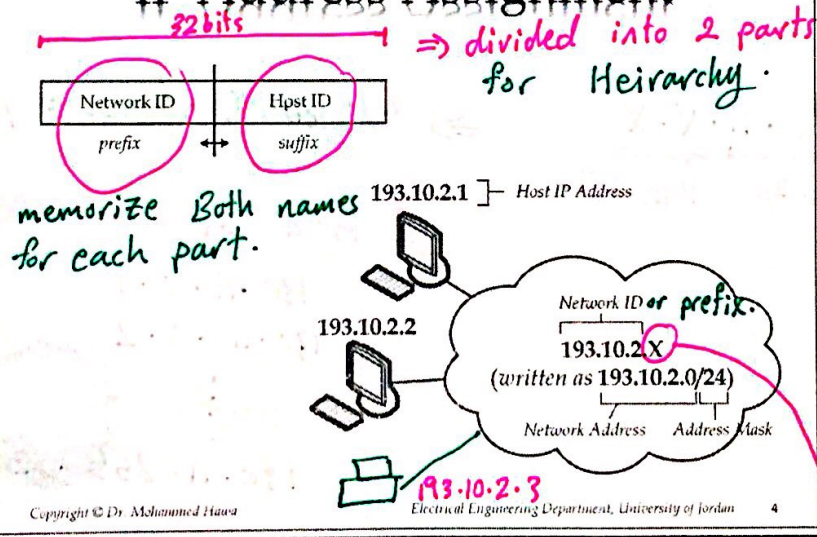 32 bits
⇒ divided into 2 parts
for Heirarchy.
Network ID
Host ID
prefix
suffix
memorize Both names
for each part.
193.10.2.1
Host IP Address
193.10.2.2
Network ID or prefix.
193.10.2.X
(written as 193.10.2.0/24)
Network Address
Address Mask
193.10.2.3
Copyright © Dr. Mohammed Hawa
Electrical Engineering Department, University of Jordan
4